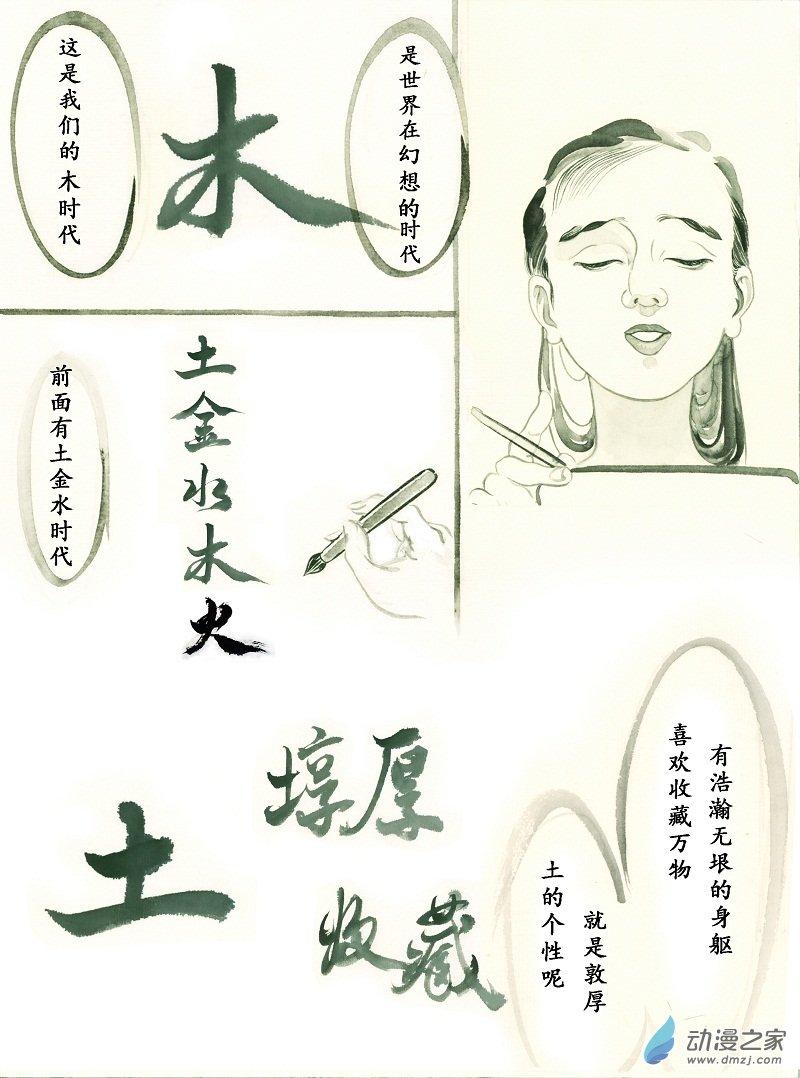 是世界在幻想的时代
木
这是我们的木时代
土金水木火
前面有土金水时代
有浩瀚无垠的身躯
喜欢收藏万物
就是敦厚
土的个性呢
埻厚
收藏
土
动漫之家
www.dmzj.com